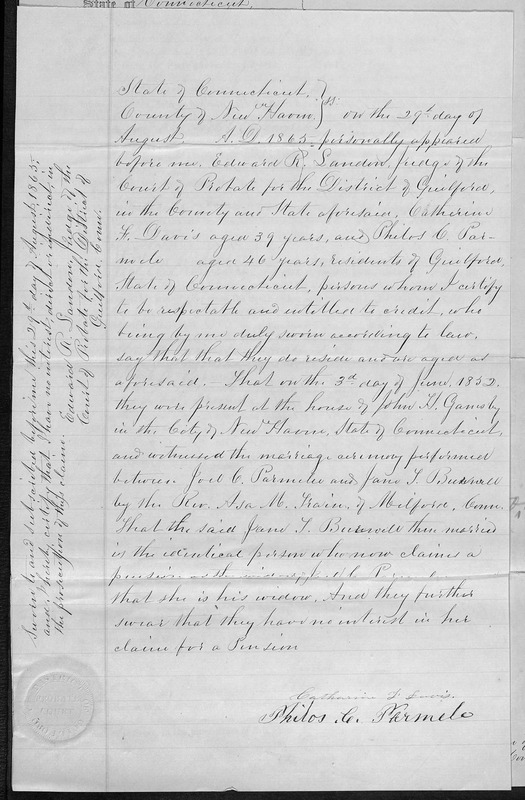 State of Connecticut.
State of Connecticut,
County of New Haven, } ss. On the 29th day of
August, A.D. 1865 personally appeared
before me, Edward R. Landon, Judge of the
Court of Probate for the District of Guilford,
in the County and State aforesaid, Catherine
F. Davis aged 39 years, and Philos C. Par-
mele aged 46 years, residents of Guilford,
State of Connecticut, persons whom I certify
to be respectable and entitled to credit, who
being by me duly sworn according to law,
say that that they do reside and are aged as
aforesaid. - That on the 3d day of June, 1852.
they were present at the house of John H.
in the City of New Haven, State of Connecticut,
and witnessed the marriage ceremony performed
between Joel C. Parmelee and Jane T. Burwell
by the Rev. Asa M. Train, of Milford, Conn.
That the said Jane T. Burwell then married
is the identical person who now claims a
pension as the widow of
that she is his widow. And they further
swear that they have no interest in her
claim for a Pension
Catharine F. Davis.
Philos. C. Parmele
Sworn to and subscribed before me this 29th day of August, 1865,
and I hereby certify that I have no interest, direct or indirect, in
the prosecution of this claim.
Edward R. Landon Judge of the
Court of Probate for the District of
Guilford, Conn.